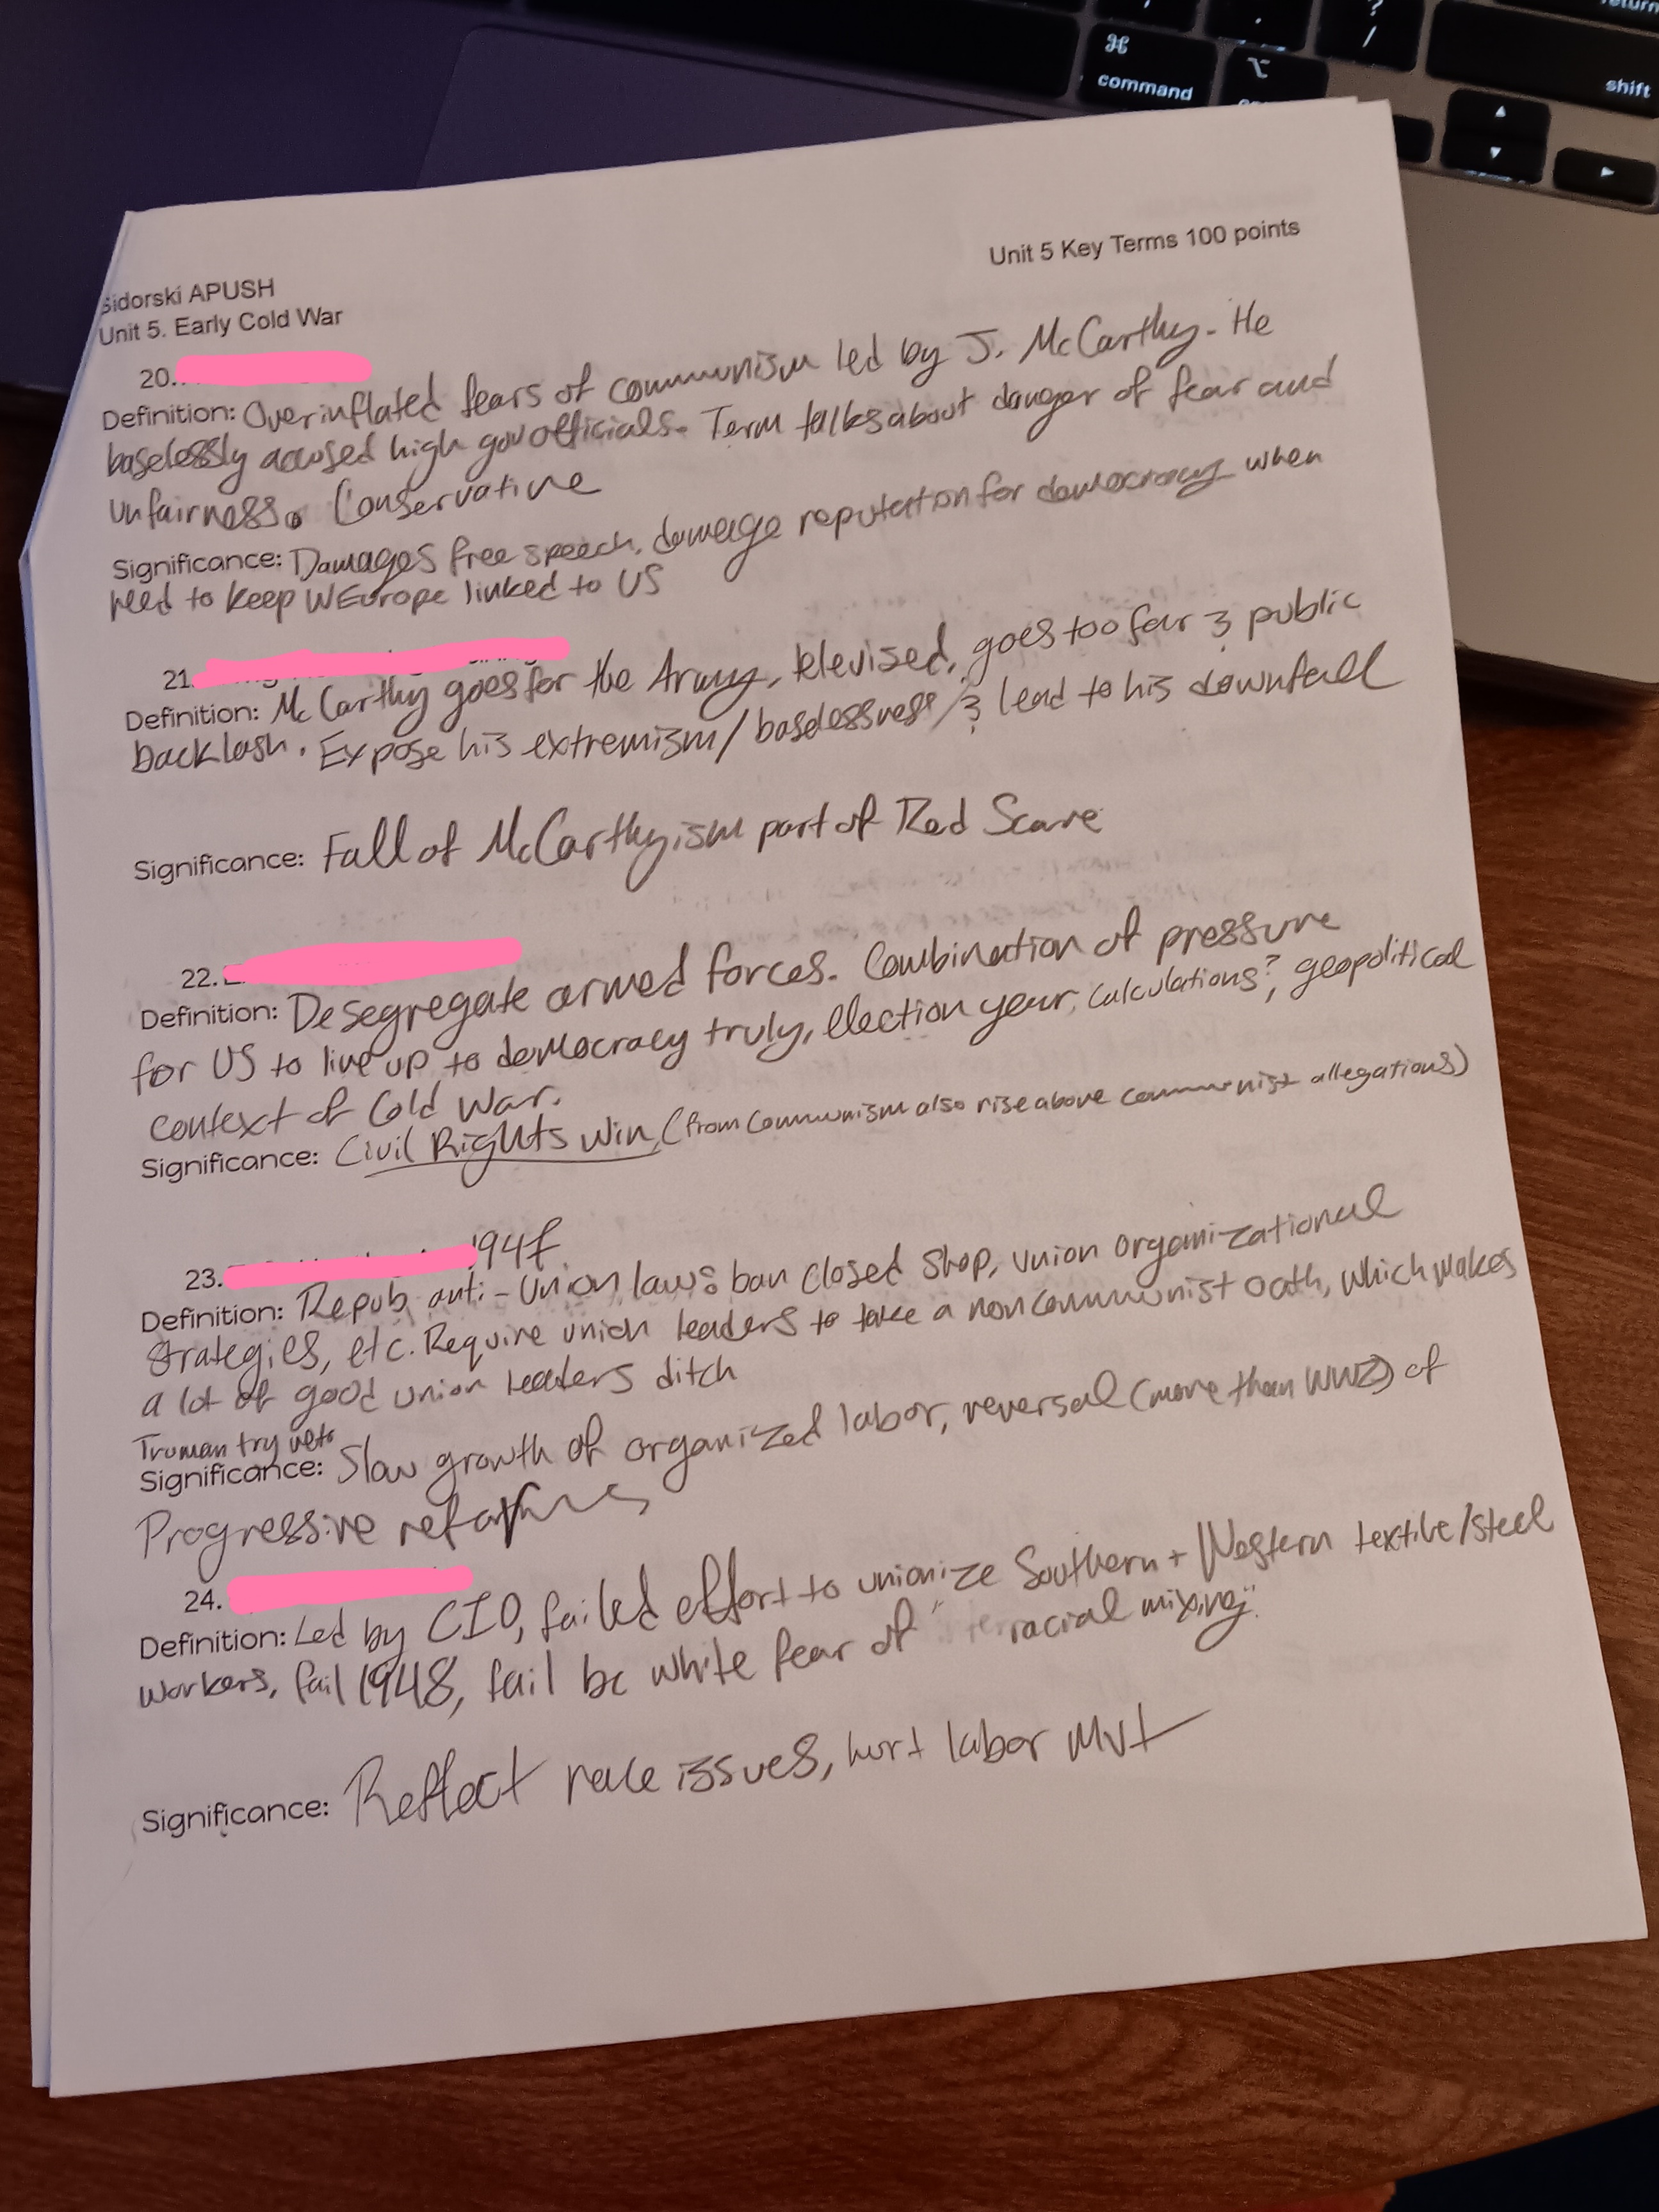 command
shift
Unit 5 Key Terms 100 points
Sidorski APUSH
Unit 5. Early Cold War
20.
Definition: Overinflated fears of communism led by J. McCarthy. He
baselessly accused high gov officials. Term talks about danger of fear and
unfairness. Conservative
Significance: Damages free speech, damage reputation for democracy when
need to keep W Europe linked to US
21.
Definition: McCarthy goes for the Army, televised, goes too far & public
backlash. Expose his extremism/baselessness/& lead to his downfall
Significance: Fall of McCarthyism part of Red Scare
22.
Definition: Desegregate armed forces. Combination of pressure
for US to live up to democracy truly, election year calculations?, geopolitical
context of Cold War.
Significance: Civil Rights win (from communism also rise above communist allegations)
23. 1947
Definition: Repub anti-union laws: ban closed shop, union organizational
strategies, etc. Require union leaders to take a noncommunist oath, which makes
a lot of good union leaders ditch
Truman try veto
Significance: Slow growth of organized labor, reversal (more than WW2) of
Progressive reforms
24.
Definition: Led by CIO, failed effort to unionize Southern + Western textile/steel
workers, fail 1948, fail bc white fear of "racial mixing".
Significance: Reflect race issues, hurt labor mvt